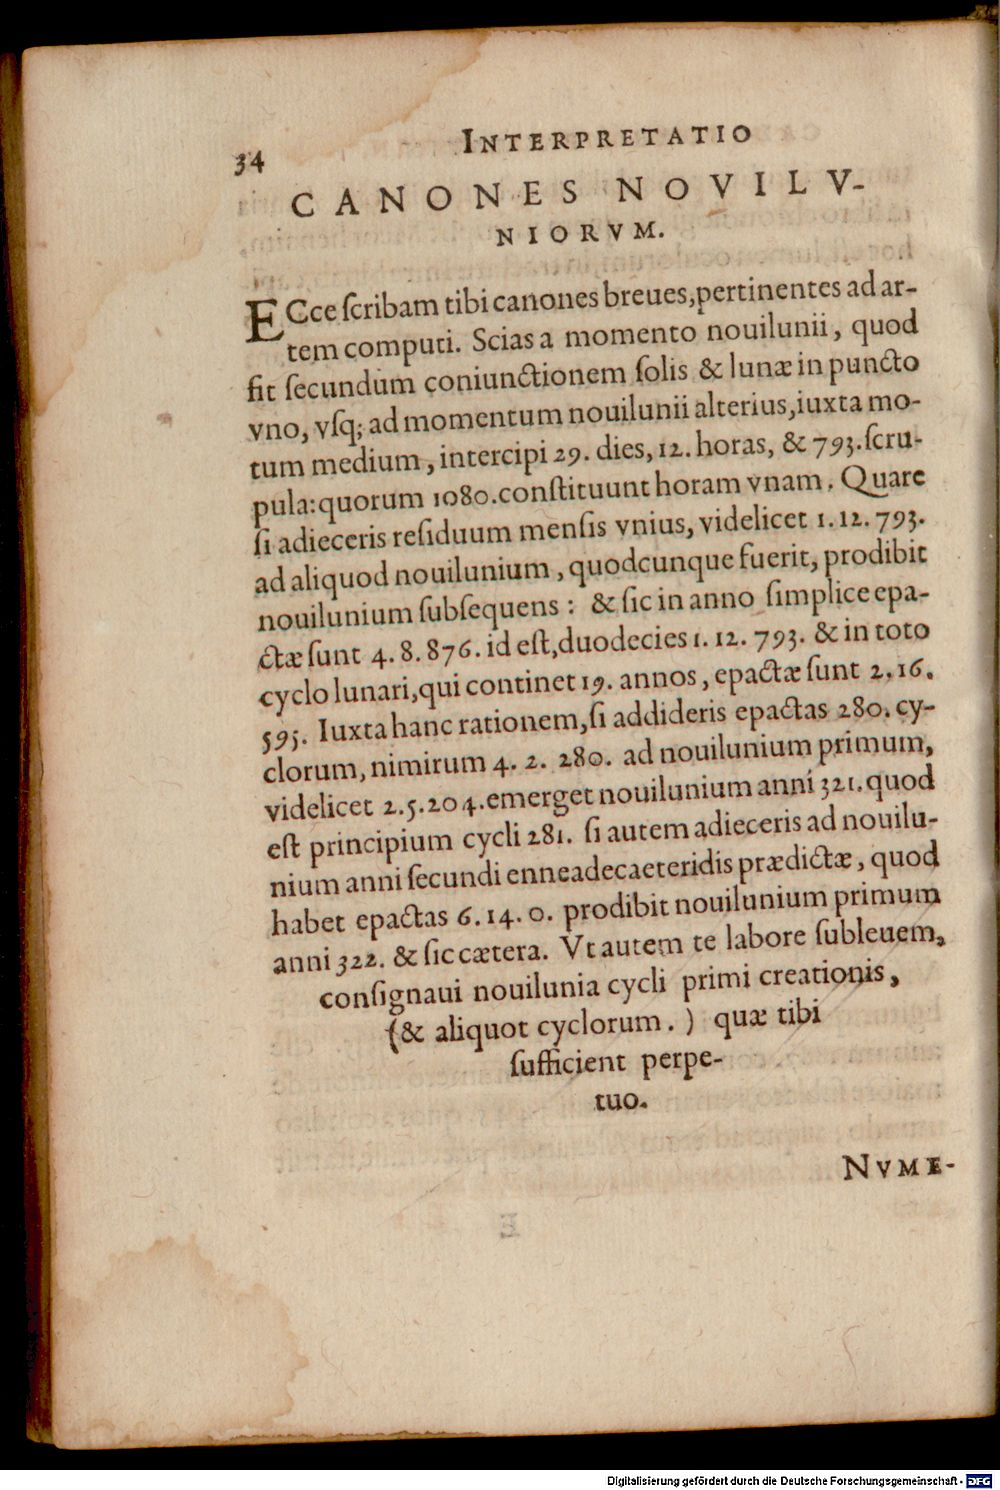 34
INTERPRETATIO
CANONES NOVILV-
NIORVM.
ECce ſcribam tibi canones breues, pertinentes ad ar-
tem computi. Scias a momento nouilunii, quod
fit ſecundum coniunctionem ſolis & lunæ in puncto
vno, vſq; ad momentum nouilunii alterius, iuxta mo-
tum medium, intercipi 29. dies, 12. horas, & 793. ſcru-
pula: quorum 1080. conſtituunt horam vnam. Quare
ſi adieceris reſiduum menſis vnius, videlicet 1. 12. 793.
ad aliquod nouilunium, quodcunque fuerit, prodibit
nouilunium ſubſequens: & ſic in anno ſimplice epa-
ctæ ſunt 4. 8. 876. id eſt, duodecies 1. 12. 793. & in toto
cyclo lunari, qui continet 19. annos, epactæ ſunt 2. 16.
595. Iuxta hanc rationem, ſi addideris epactas 280. cy-
clorum, nimirum 4. 2. 280. ad nouilunium primum,
videlicet 2. 5. 204. emerget nouilunium anni 321. quod
eſt principium cycli 281. ſi autem adieceris ad nouilu-
nium anni ſecundi enneadecaeteridis prædictæ, quod
habet epactas 6. 14. 0. prodibit nouilunium primum
anni 322. & ſic cætera. Vt autem te labore ſubleuem,
conſignaui nouilunia cycli primi creationis,
(& aliquot cyclorum.) quæ tibi
ſufficient perpe-
tuo.
NVME-
Digitalisierung gefördert durch die Deutsche Forschungsgemeinschaft - DFG